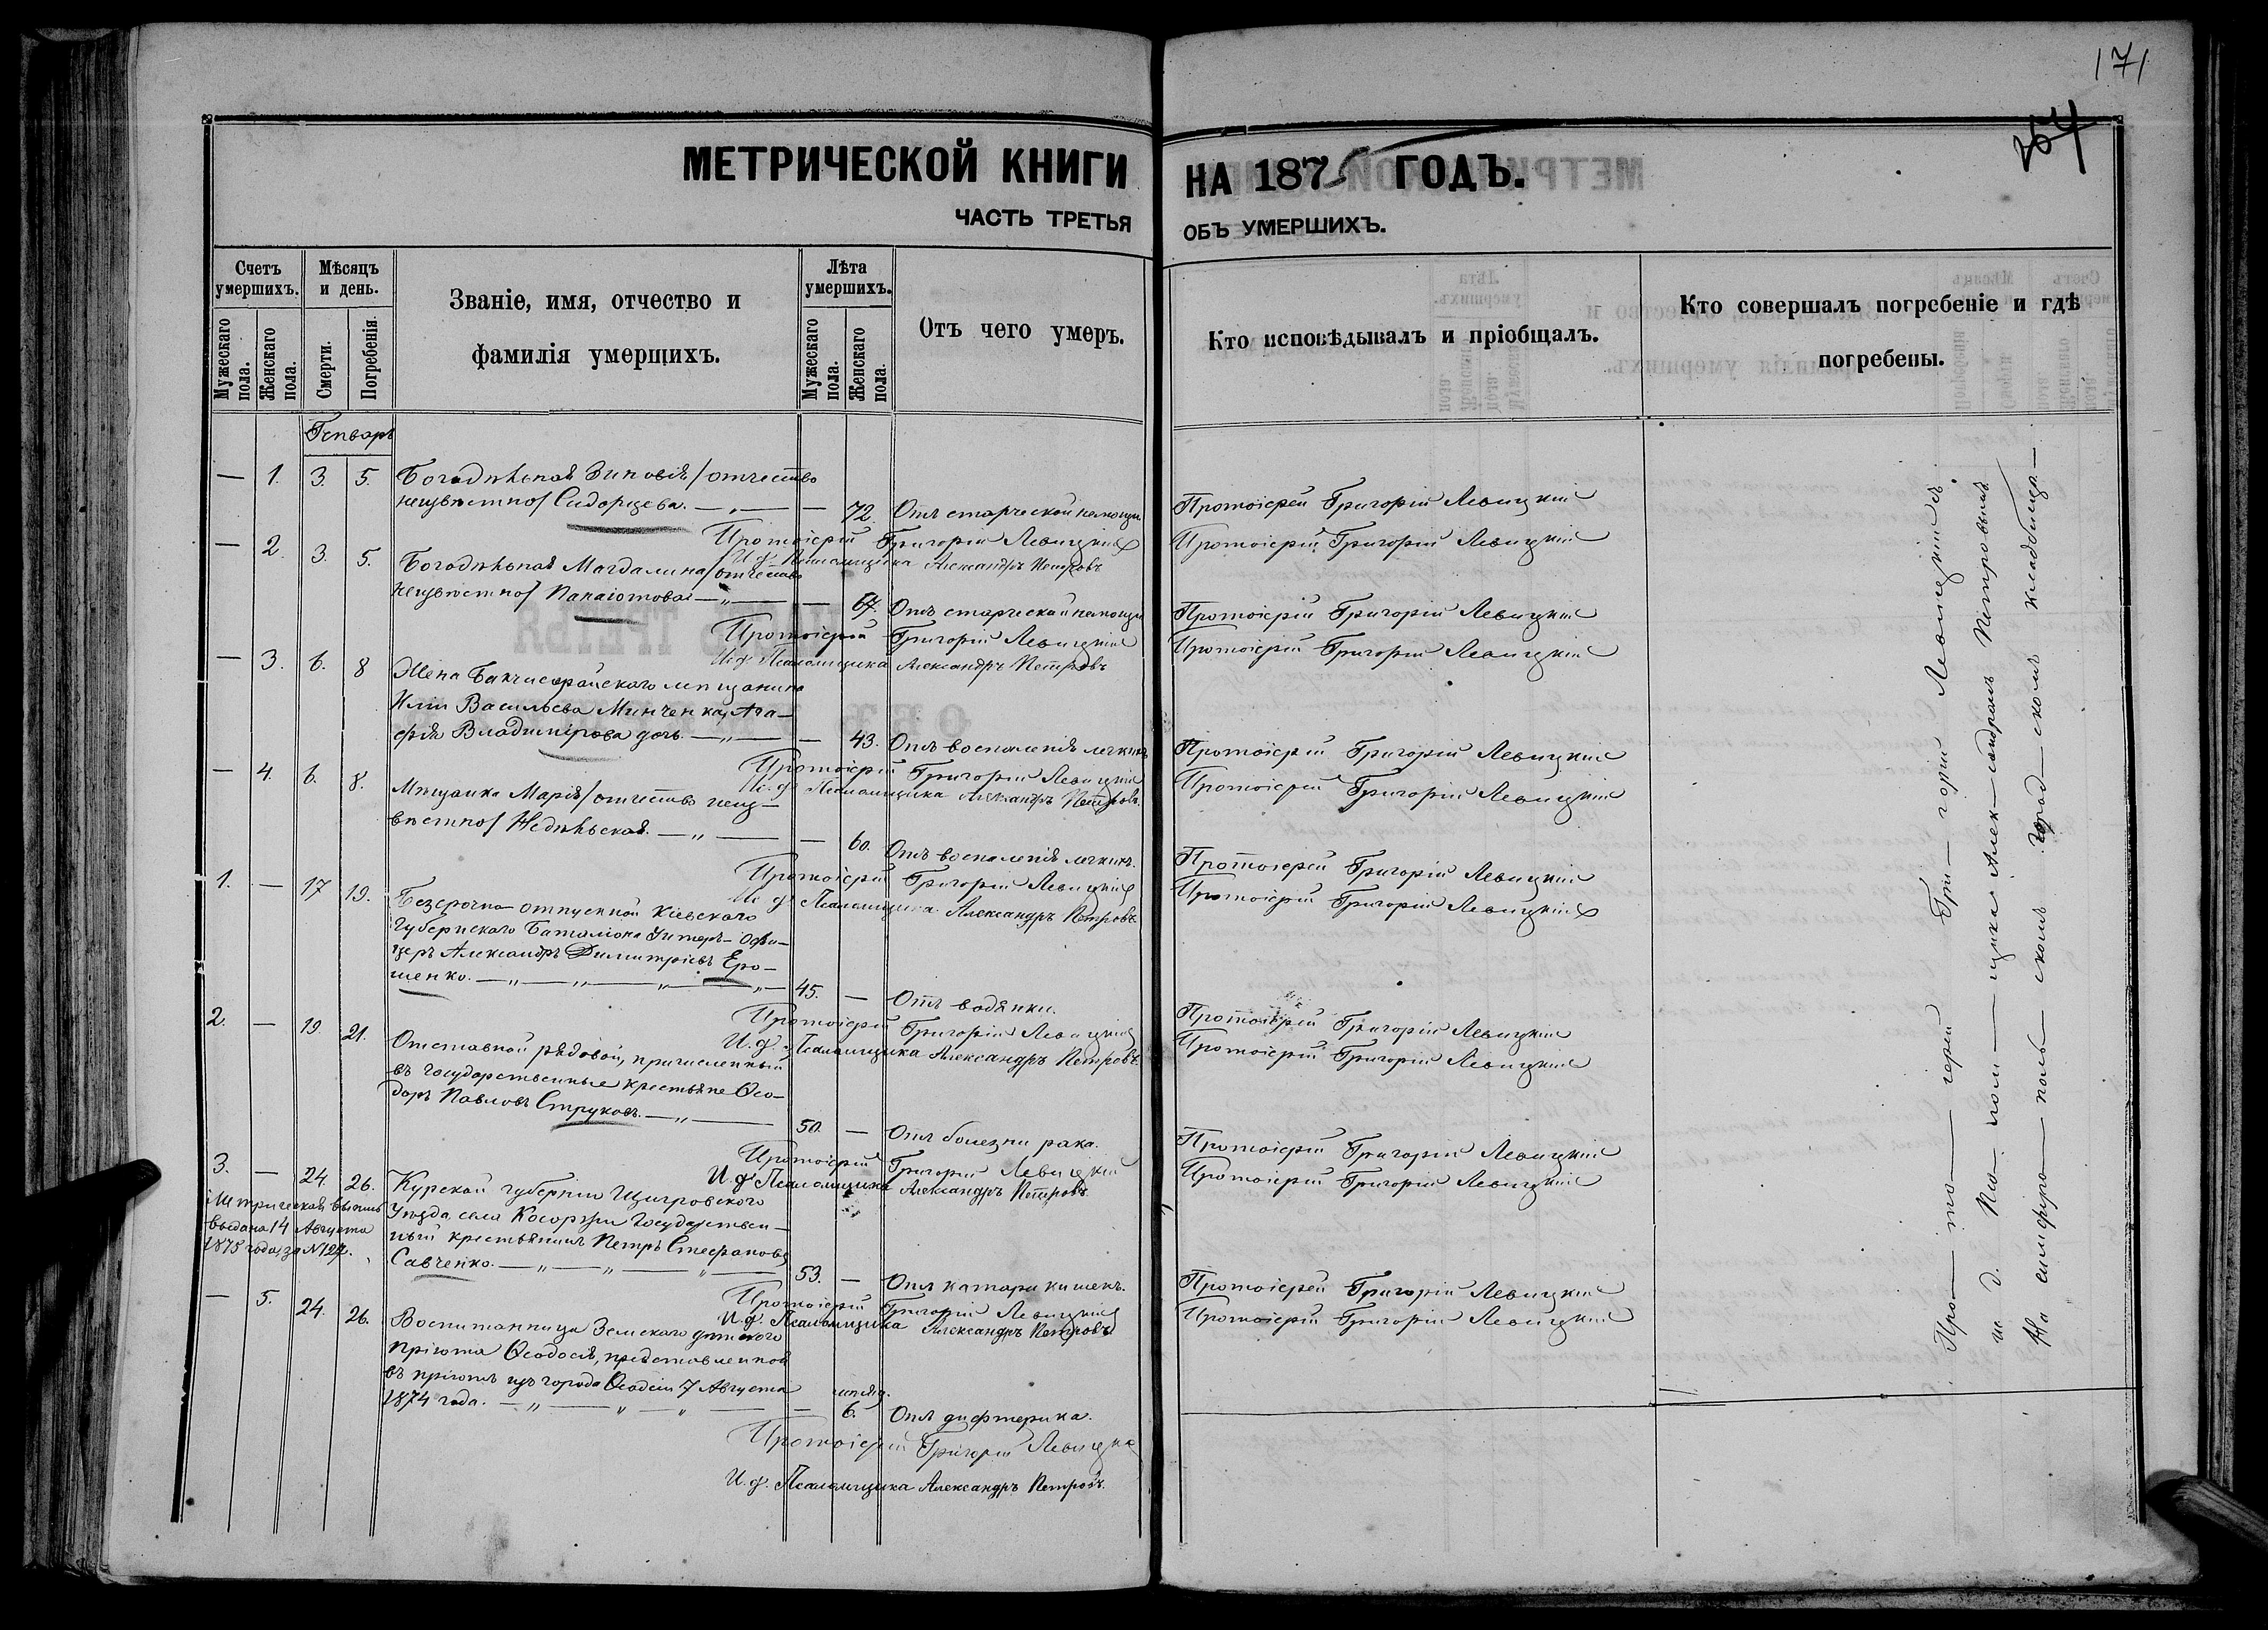 171
264
МЕТРИЧЕСКОЙ КНИГИ НА 1875 ГОДЪ.
ЧАСТЬ ТРЕТЬЯ ОБЪ УМЕРШИХЪ.
Счетъ умершихъ.
Мужескаго пола.
Женскаго пола.
Мѣсяцъ и день.
Смерти.
Погребенія.
Званіе, имя, отчество и
фамилія умершихъ.
Лѣта умершихъ.
Мужескаго пола.
Женскаго пола.
Отъ чего умеръ.
Кто исповѣдывалъ и пріобщалъ.
Кто совершалъ погребеніе и гдѣ
погребены.
Генварь
— 1. 3. 5. Богадѣльная Зиновія /отчество
неизвѣстно/ Сидорцева. — 72. Отъ старческой немощи
Протоіерей Григорій Левицкій
Протоіерей Григорій Левицкій
И. д. Псаломщика Александръ Петровъ
Протоіерей Григорій Левицкій
— 2. 3. 5. Богадѣльная Магдалина /отчество
неизвѣстно/ Папаіотова — 67. Отъ старческой немощи
Протоіерей Григорій Левицкій
Протоіерей Григорій Левицкій
И. д. Псаломщика Александръ Петровъ
Протоіерей Григорій Левицкій
— 3. 6. 8 Жена Бахчисарайскаго мѣщанина
Иліи Васильева Минченка, Ага-
фія Владимірова дочь — 43. Отъ воспаленія легкихъ
Протоіерей Григорій Левицкій
Протоіерей Григорій Левицкій
И. д. Псаломщика Александръ Петровъ.
Протоіерей Григорій Левицкій
— 4. 6. 8. Мѣщанка Марія /отчество неиз-
вѣстно/ Недѣльская. — 60. Отъ воспаленія легкихъ.
Протоіерей Григорій Левицкій
Протоіерей Григорій Левицкій
И. д. Псаломщика Александръ Петровъ
Протоіерей Григорій Левицкій
1. — 17 19. Безсрочно-отпускной Кіевскаго
Губернскаго Баталіона Унтеръ-Офи-
церъ Александръ Димитріевъ Еро-
шенко. 45. — Отъ водянки.
Протоіерей Григорій Левицкій
Протоіерей Григорій Левицкій
И. д. Псаломщика Александръ Петровъ.
Протоіерей Григорій Левицкій
2. — 19. 21. Отставной рядовой, причисленный
въ государственные крестьяне Ѳео-
доръ Павловъ Струковъ. 50. — Отъ болезни рака.
Протоіерей Григорій Левицкій
Протоіерей Григорій Левицкій
И. д. Псаломщика Александръ Петровъ.
Протоіерей Григорій Левицкій
3. — 24. 26. Курской губерніи Щигровскаго
Уѣзда, села Косоржи Государствен-
ный крестьянинъ Петръ Стефановъ
Савченко. 53. — Отъ катара кишекъ.
Метрическая выпись
выдана 14 Августа
1875 года, за № 127.
Протоіерей Григорій Левицкій
Протоіерей Григорій Левицкій
И. д. Псаломщика Александръ Петровъ
Протоіерей Григорій Левицкій
— 5. 24. 26. Воспитанница Земскаго дѣтскаго
пріюта Ѳеодосія, представленная
въ пріютъ изъ города Ѳеодосіи 7 Августа
1874 года. — 6. Отъ дифтерика.
Протоіерей Григорій Левицкій
И. д. Псаломщика Александръ Петровъ.
Про— то— іерей Гри— горій Левицкій съ
и. д. Пса— лом— щика Алек— сандромъ Петровымъ
На симферо— поль— скомъ город— скомъ кладбищѣ —